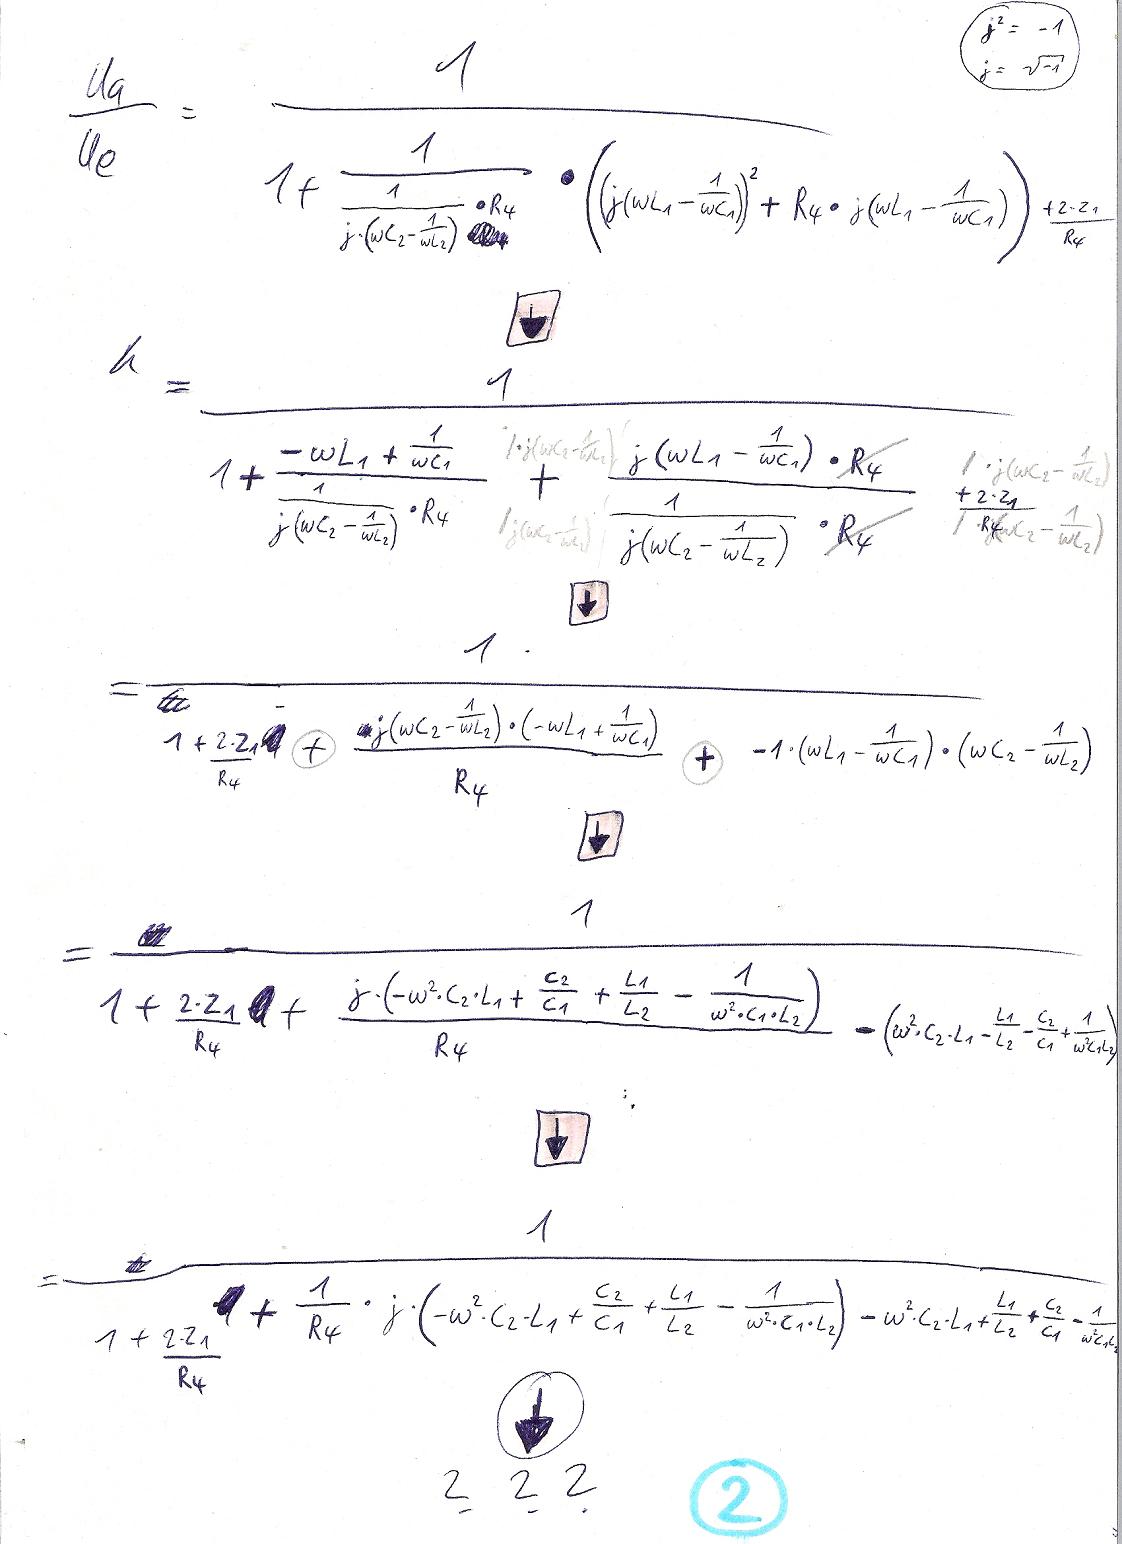 j² = -1
j = √-1
Ua/Ue = 1 / (1 + 1/(1/(j·(ωC2 - 1/ωL2)) • R4) • ((j(ωL1 - 1/ωC1))² + R4 • j(ωL1 - 1/ωC1)) + 2·Z1/R4)
↓
h = 1 / (1 + (-ωL1 + 1/ωC1)/(1/(j(ωC2 - 1/ωL2)) • R4) /·j(ωC2 - 1/ωL2) /j(ωC2 - 1/ωL2) + (j(ωL1 - 1/ωC1) • R4)/(1/(j(ωC2 - 1/ωL2)) • R4) + 2·Z1/R4) /·j(ωC2 - 1/ωL2) /·j(ωC2 - 1/ωL2)
↓
= 1 / (1 + 2·Z1/R4 + (j(ωC2 - 1/ωL2)•(-ωL1 + 1/ωC1))/R4 + -1·(ωL1 - 1/ωC1)•(ωC2 - 1/ωL2))
↓
= 1 / (1 + 2·Z1/R4 + (j·(-ω²·C2·L1 + C2/C1 + L1/L2 - 1/(ω²·C1·L2)))/R4 - (ω²·C2·L1 - L1/L2 - C2/C1 + 1/(ω²C1L2)))
↓
= 1 / (1 + 2·Z1/R4 + 1/R4 · j·(-ω²·C2·L1 + C2/C1 + L1/L2 - 1/(ω²·C1·L2)) - ω²·C2·L1 + L1/L2 + C2/C1 - 1/(ω²C1L2))
↓
? ? ?
2